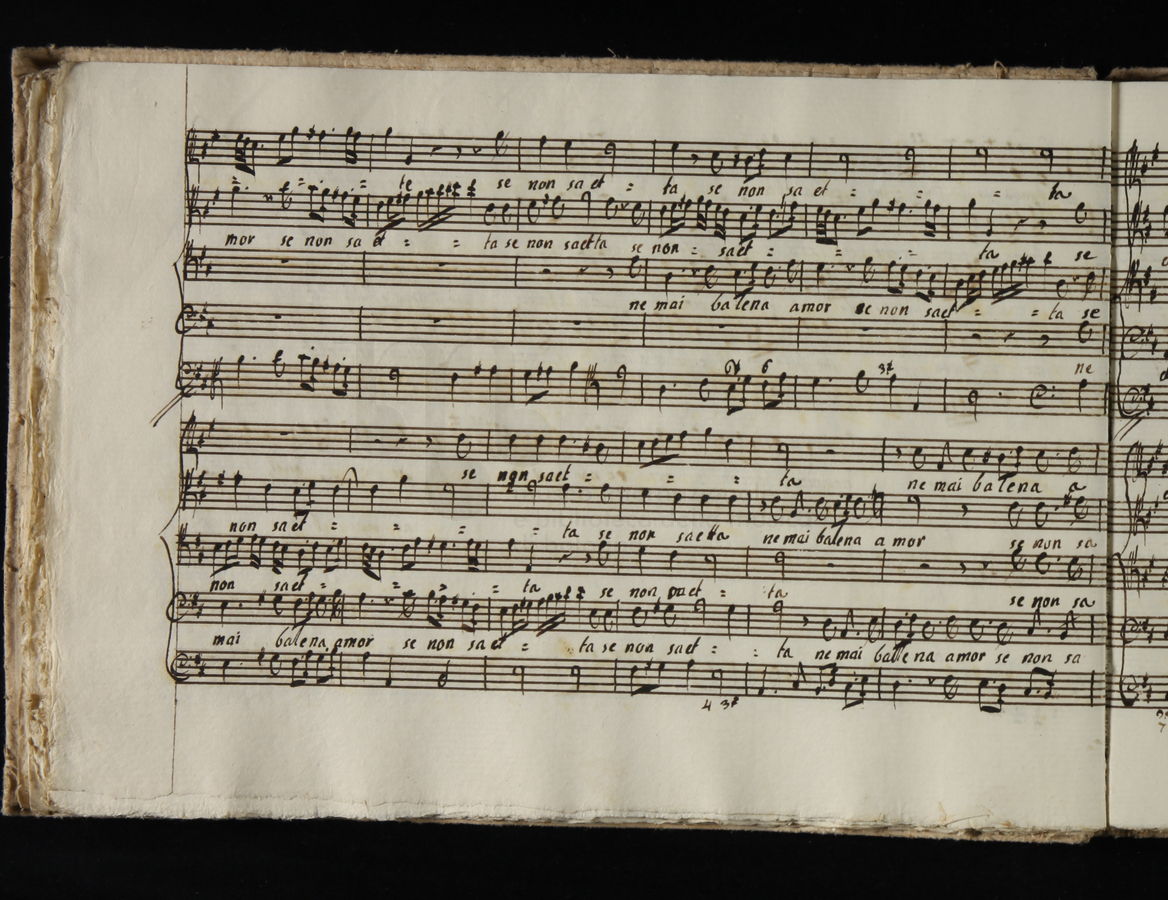 te se non sa et = ta se non sa et = = = ta
mor se non sa et = = ta se non saetta se non = saet = = = ta se
ne mai balena amor se non saet = = ta se
6 6 3# ne
se non saet = = = ta ne mai balena a
non sa et = = = = ta se non saetta ne mai balena a mor se non sa
non saet = = = ta se non saet = ta se non sa
mai balena amor se non sa et = ta se non saet = = ta ne mai balena amor se non sa
4 3#